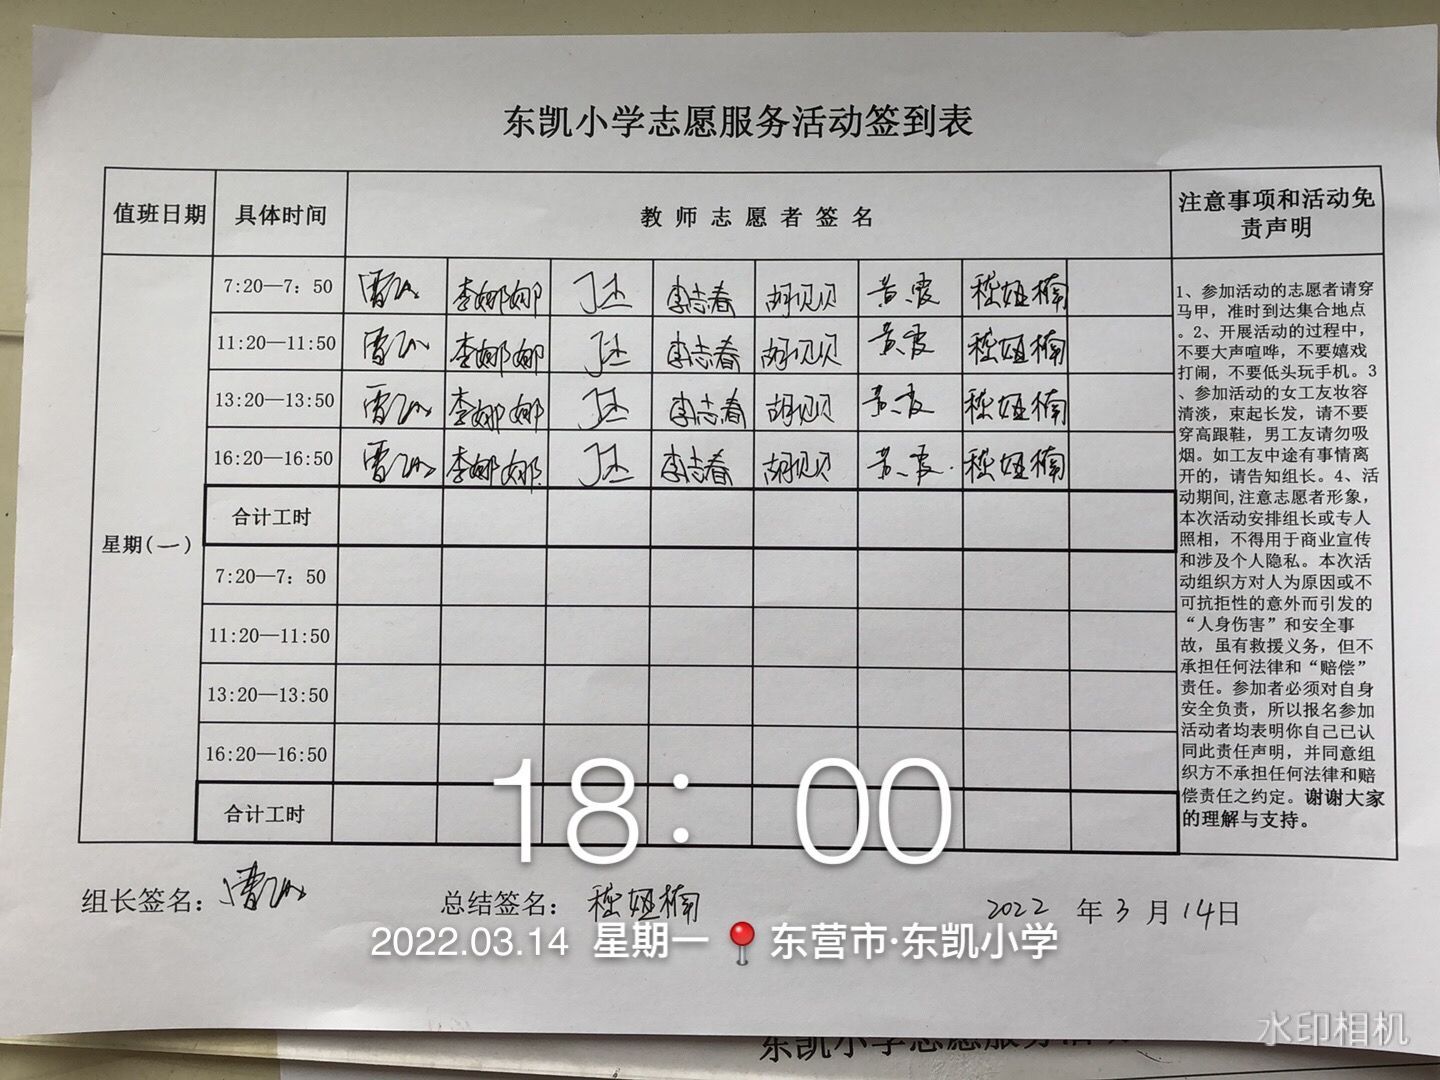 东凯小学志愿服务活动签到表
值班日期 具体时间 教师志愿者签名 注意事项和活动免
责声明
7:20—7：50 李娜娜 李志春 胡贝贝 黄霞 嵇妞楠
11:20—11:50 李娜娜 李志春 胡贝贝 黄霞 嵇妞楠
13:20—13:50 李娜娜 李志春 胡贝贝 黄霞 嵇妞楠
16:20—16:50 李娜娜 李志春 胡贝贝 黄霞 嵇妞楠
合计工时
星期(一)
7:20—7：50
11:20—11:50
13:20—13:50
16:20—16:50
合计工时
1、参加活动的志愿者请穿
马甲，准时到达集合地点
。2、开展活动的过程中，
不要大声喧哗，不要嬉戏
打闹，不要低头玩手机。3
、参加活动的女工友妆容
清淡，束起长发，请不要
穿高跟鞋，男工友请勿吸
烟。如工友中途有事情离
开的，请告知组长。4、活
动期间,注意志愿者形象，
本次活动安排组长或专人
照相，不得用于商业宣传
和涉及个人隐私。本次活
动组织方对人为原因或不
可抗拒性的意外而引发的
“人身伤害”和安全事
故，虽有救援义务，但不
承担任何法律和“赔偿”
责任。参加者必须对自身
安全负责，所以报名参加
活动者均表明你自己已认
同此责任声明，并同意组
织方不承担任何法律和赔
偿责任之约定。谢谢大家
的理解与支持。
18：00
组长签名： 总结签名： 嵇妞楠 2022 年 3 月 14日
2022.03.14 星期一 东营市·东凯小学
水印相机
东凯小学志愿服务活动